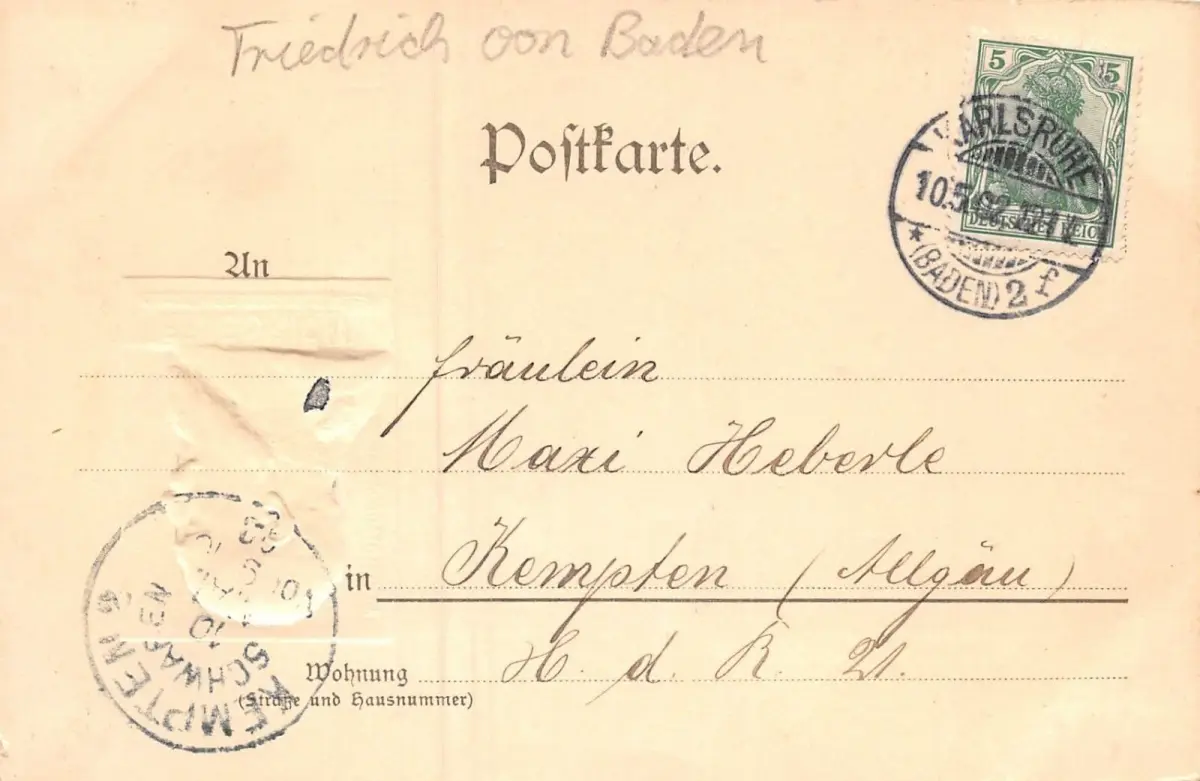 Friedrich von Baden
5 5
DEUTSCHES REICH
Postkarte.
KARLSRUHE
10.5.
(BADEN) 2 f
An
Fräulein
Maxi Heberle
in Kempten (Allgäu)
Wohnung H. d. R. 21.
(Straße und Hausnummer)
KEMPTEN
SCHWABEN